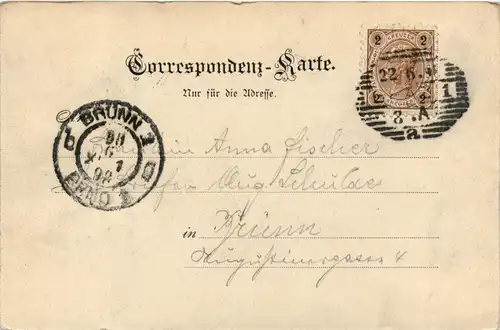 Correspondenz-Karte.
Nur für die Adresse.
2 KREUZER 2
22/6
1
8 A
a
BRÜNN 1
BRNO 1
Anna Fischer
Aug Schulde
in Brünn
Augustinergasse 4